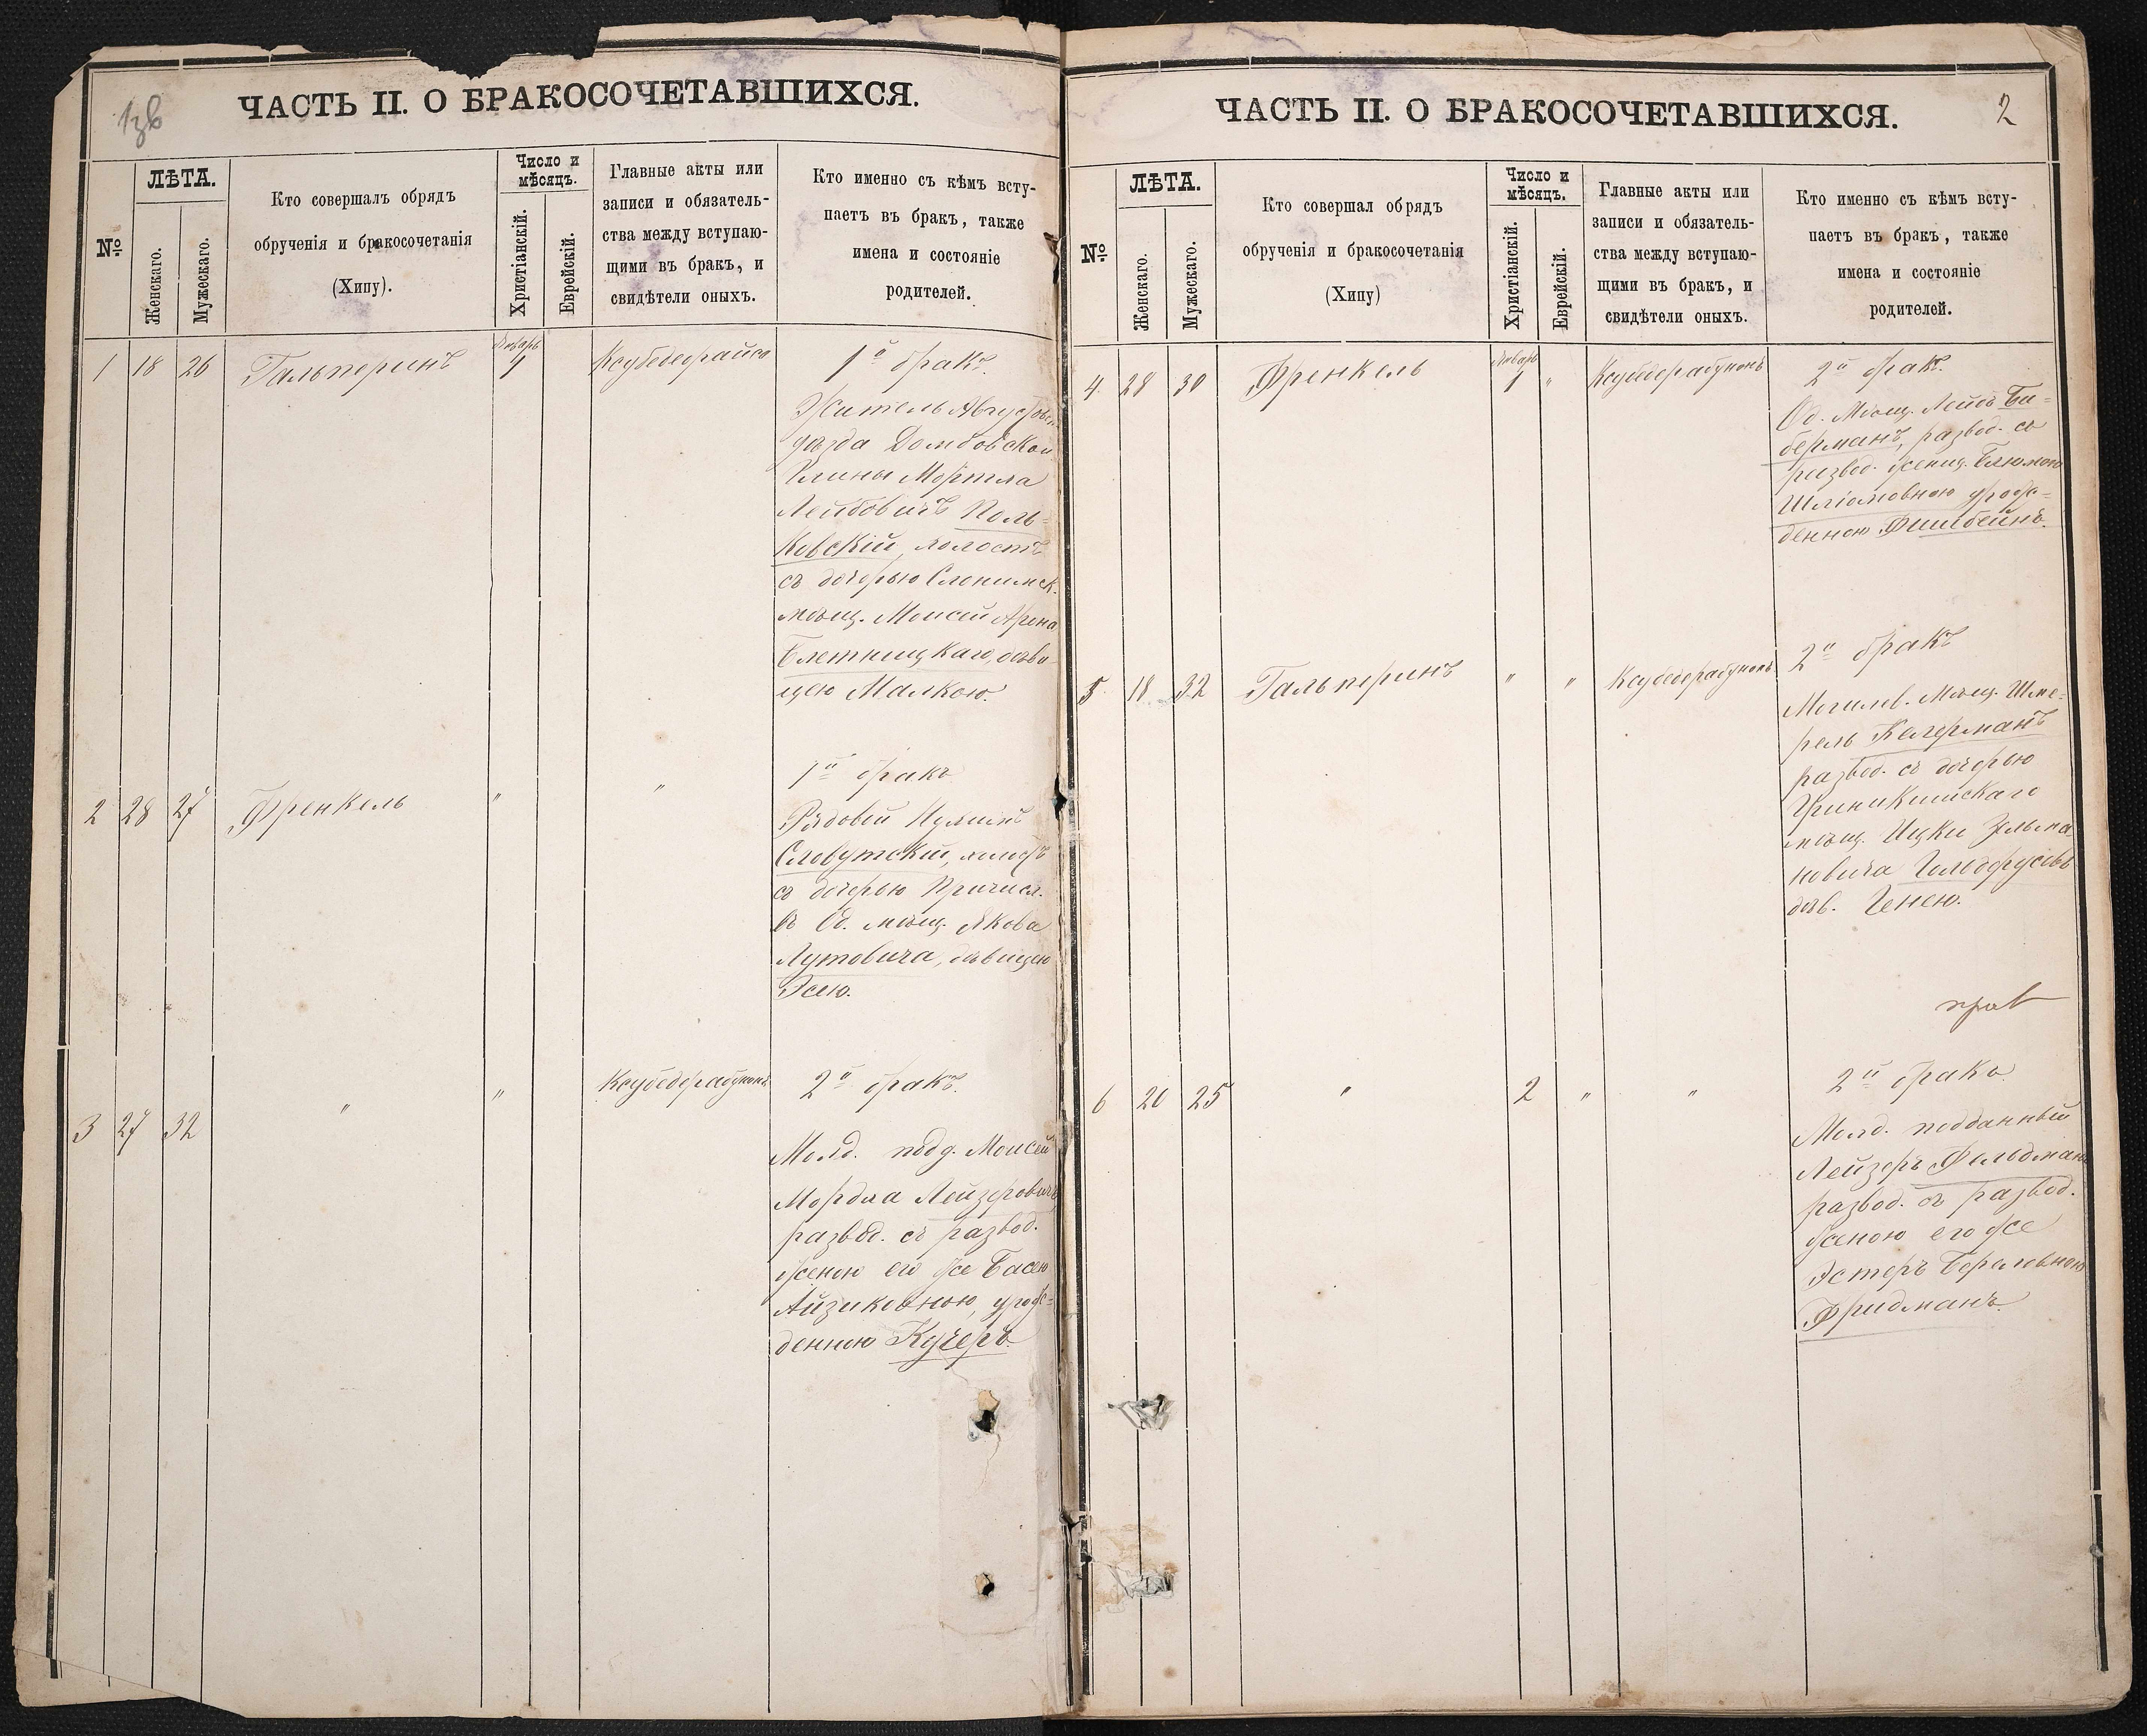 ЧАСТЬ II. О БРАКОСОЧЕТАВШИХСЯ.
№
ЛѢТА.
Женскаго.
Мужескаго.
Кто совершалъ обрядъ
обрученія и бракосочетанія
(Хипу).
Число и
мѣсяцъ.
Христіанскій.
Еврейскій.
Главные акты или
записи и обязатель-
ства между вступаю-
щими въ бракъ, и
свидѣтели оныхъ.
Кто именно съ кѣмъ всту-
паетъ въ бракъ, также
имена и состояніе
родителей.
1 18 26 Гальперинъ Январь 1
1й бракъ.
Житель Августовск
уѣзда Домбовской
Глины Мортха
Лейбовичъ Поль-
ковскій, холостъ
съ дочерью Слонимск.
мѣщ. Моисей Арона
Блетницкаго, дѣви-
цею Малкою.
2 28 27 Френкель " "
1й бракъ
Рядовой
Словутскій, холостъ
съ дочерью Причисл.
въ Од. мѣщ. Якова
Лутовича, дѣвицею
Эсею.
3 27 32 " "
2й бракъ.
Молд. подд. Моисей
Мордха Лейзеровичъ
развод. съ развод.
женою его же Басею
Айзиковною, урож-
денною Кучеръ.
ЧАСТЬ II. О БРАКОСОЧЕТАВШИХСЯ.
2
№
ЛѢТА.
Женскаго.
Мужескаго.
Кто совершал обрядъ
обрученія и бракосочетанія
(Хипу)
Число и
мѣсяцъ.
Христіанскій.
Еврейскій.
Главные акты или
записи и обязатель-
ства между вступаю-
щими въ бракъ, и
свидѣтели оныхъ.
Кто именно съ кѣмъ всту-
паетъ въ бракъ, также
имена и состояніе
родителей.
4. 28 30 Френкель Январь 1 "
2й бракъ.
Од. Мѣщ. Лейбъ Би-
берманъ, развод. съ
развод. женщ. Блюмою
Шліомовною урож-
денною Фишбейнъ.
5 18 32 Гальперинъ " "
2й бракъ
Могилев. Мѣщ. Шме-
рель Келерманъ
развод. съ дочерью
мѣщ. Ицки Зельма-
новича
дѣв. Генею.
6 20 25 " 2 " "
2й бракъ
Молд. подданный
Лейзеръ Фельдманъ
развод. съ развод.
женою его же
Эстеръ Бераловною
Фридманъ.